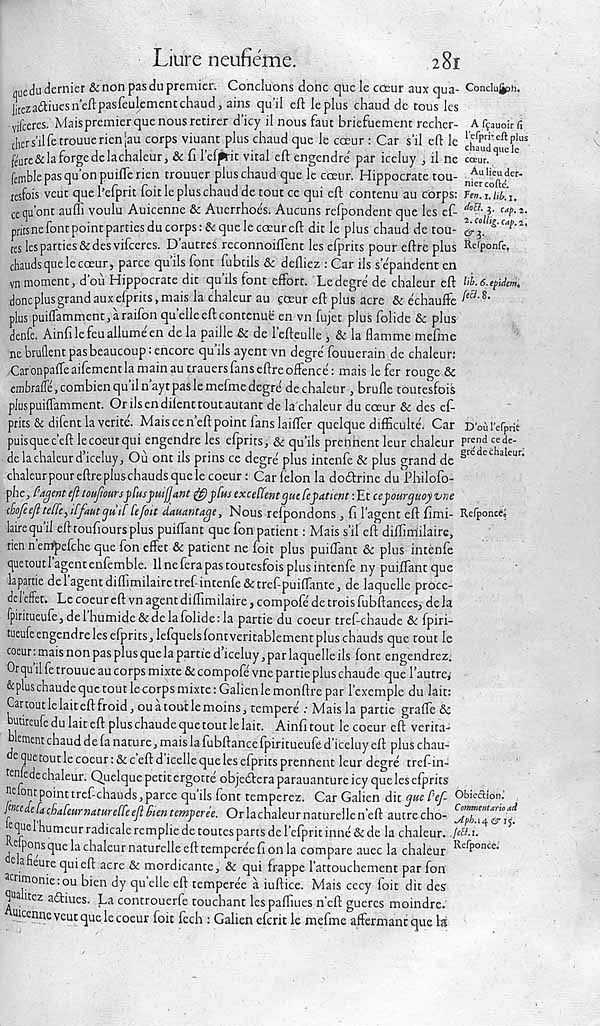 Liure neufiéme. 281
que du dernier & non pas du premier. Concluons donc que le cœur aux qua-
litez actiues n'est pas seulement chaud, ains qu'il est le plus chaud de tous les
visceres. Mais premier que nous retirer d'icy il nous faut briefuement recher-
cher s'il se trouue rien au corps viuant plus chaud que le cœur : Car s'il est le
féure & la forge de la chaleur, & si l'esprit vital est engendré par iceluy, il ne
semble pas qu'on puisse rien trouuer plus chaud que le cœur. Hippocrate tou-
tesfois veut que l'esprit soit le plus chaud de tout ce qui est contenu au corps:
ce qu'ont aussi voulu Auicenne & Auerrhoés. Aucuns respondent que les es-
prits ne sont point parties du corps : & que le cœur est dit le plus chaud de tou-
tes les parties & des visceres. D'autres reconnoissent les esprits pour estre plus
chauds que le cœur, parce qu'ils sont subtils & desliez : Car ils s'épandent en
vn moment, d'où Hippocrate dit qu'ils sont effort. Le degré de chaleur est
donc plus grand aux esprits, mais la chaleur au çœur est plus acre & échauffe
plus puissamment, à raison qu'elle est contenuë en vn sujet plus solide & plus
dense. Ainsi le feu allumé en de la paille & de l'esteulle, & la flamme mesme
ne bruslent pas beaucoup : encore qu'ils ayent vn degré souuerain de chaleur:
Car on passe aisement la main au trauers sans estre offencé : mais le fer rouge &
embrassé, combien qu'il n'ayt pas le mesme degré de chaleur, brusle toutesfois
plus puissamment. Or ils en disent tout autant de la chaleur du cœur & des es-
prits & disent la verité. Mais ce n'est point sans laisser quelque difficulté. Car
puis que c'est le coeur qui engendre les esprits, & qu'ils prennent leur chaleur
de la chaleur d'iceluy, Où ont ils prins ce degré plus intense & plus grand de
chaleur pour estre plus chauds que le coeur : Car selon la doctrine du Philoso-
phe, l'agent est tousiours plus puissant & plus excellent que le patient : Et ce pourquoy vne
chose est telle, il faut qu'il le soit dauantage, Nous respondons, si l'agent est simi-
laire qu'il est tousiours plus puissant que son patient : Mais s'il est dissimilaire,
rien n'empesche que son effet & patient ne soit plus puissant & plus intense
que tout l'agent ensemble. Il ne sera pas toutesfois plus intense ny puissant que
la partie de l'agent dissimilaire tres-intense & tres-puissante, de laquelle proce-
de l'effet. Le coeur est vn agent dissimilaire, composé de trois substances, de la
spiritueuse, de l'humide & de la solide : la partie du coeur tres-chaude & spiri-
tueuse engendre les esprits, lesquels sont veritablement plus chauds que tout le
coeur : mais non pas plus que la partie d'iceluy, par laquelle ils sont engendrez.
Or qu'il se trouue au corps mixte & composé vne partie plus chaude que l'autre,
& plus chaude que tout le corps mixte : Galien le monstre par l'exemple du lait:
Car tout le lait est froid, ou à tout le moins, temperé : Mais la partie grasse &
butireuse du lait est plus chaude que tout le lait. Ainsi tout le coeur est verita-
blement chaud de sa nature, mais la substance spiritueuse d'iceluy est plus chau-
de que tout le coeur : & c'est d'icelle que les esprits prennent leur degré tres-in-
tense de chaleur. Quelque petit ergotté objectera parauanture icy que les esprits
ne sont point tres-chauds, parce qu'ils sont temperez. Car Galien dit que l'es-
sence de la chaleur naturelle est bien temperée. Or la chaleur naturelle n'est autre cho-
se que l'humeur radicale remplie de toutes parts de l'esprit inné & de la chaleur.
Respons que la chaleur naturelle est temperée si on la compare auec la chaleur
de la fiéure qui est acre & mordicante, & qui frappe l'attouchement par son
acrimonie : ou bien dy qu'elle est temperée à iustice. Mais cecy soit dit des
qualitez actiues. La controuerse touchant les passiues n'est gueres moindre.
Auicenne veut que le coeur soit sech : Galien escrit le mesme affermant que la
Conclusion.
A sçauoir si
l'esprit est plus
chaud que le
cœur.
Au lieu der-
nier costé.
Fen. 1. lib. 1.
doct. 3. cap. 2.
2. collig. cap. 2.
& 3.
Response,
lib. 6. epidem.
sect. 8.
D'où l'esprit
prend ce de-
gré de chaleur.
Responce.
Obiection.
Commentario ad
Aph. 14 & 15.
sect. 1.
Responce.